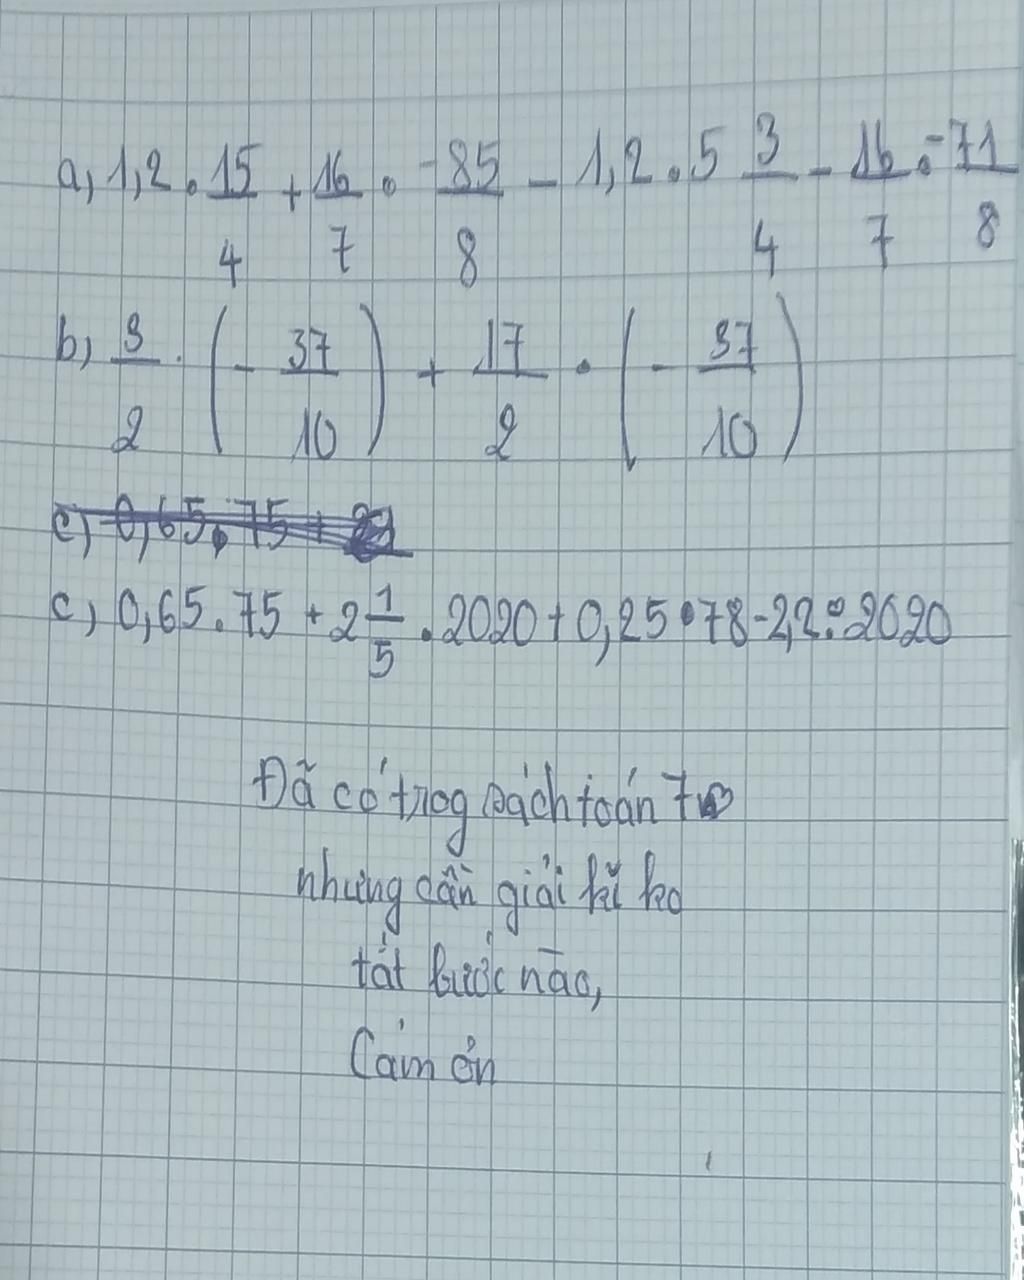 a, 1,2 . 15/4 + 16/7 . -85/8 - 1,2 . 5 3/4 - 16/7 . -71/8
b, 3/2 . (- 37/10) + 17/2 . (- 37/10)
c) 0,65 . 75 +
c) 0,65 . 75 + 2 1/5 . 2020 + 0,25 . 78 - 2,2 : 2020
Đã có trog sách toán 7
nhưng cần giải kĩ ko
tắt bước nào,
Cảm ơn